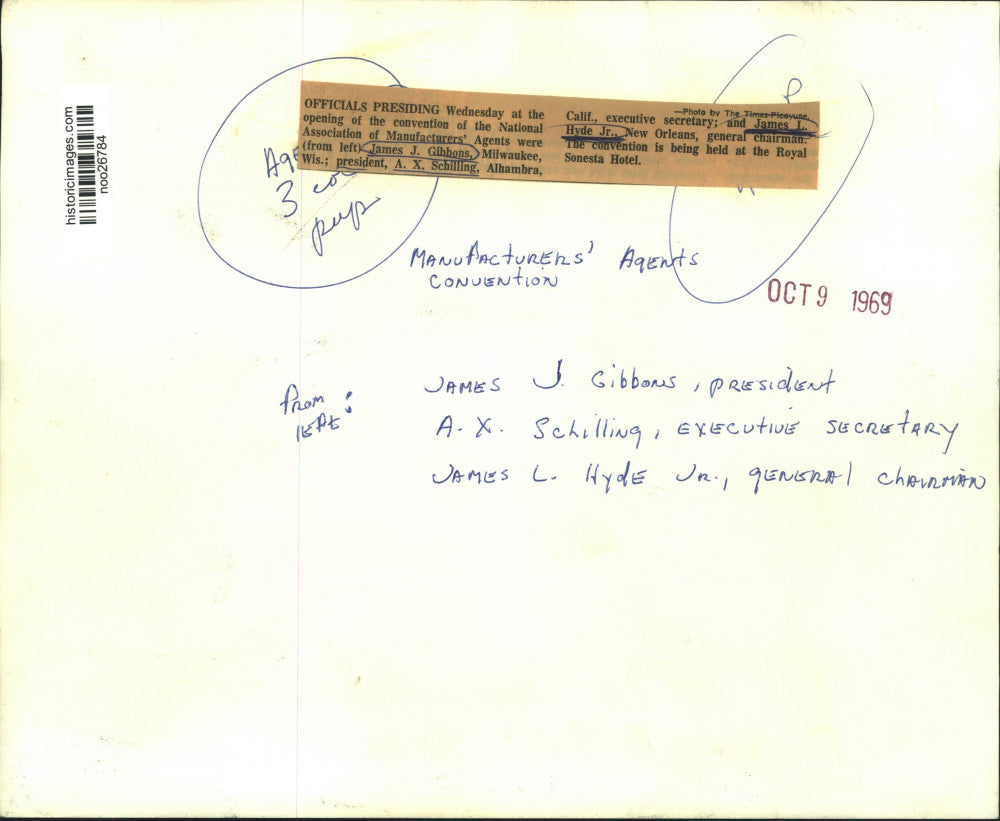 historicimages.com
noo26784
OFFICIALS PRESIDING Wednesday at the
opening of the convention of the National
Association of Manufacturers' Agents were
(from left) James J. Gibbons, Milwaukee,
Wis.; president, A. X. Schilling, Alhambra,
—Photo by The Times-Picayune.
Calif., executive secretary; and James L.
Hyde Jr., New Orleans, general chairman.
The convention is being held at the Royal
Sonesta Hotel.
3 co
pup
P
MANUFACTURERS' AGENTS
CONVENTION
OCT 9 1969
From
left:
JAMES J. Gibbons, PRESIDENT
A. X. Schilling, EXECUTIVE SECRETARY
JAMES L. Hyde Jr., GENERAL CHAIRMAN